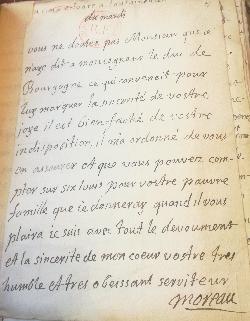 du mardi
vous ne doutez pas Monsieur que ie
n'aye dit a monseigneur le duc de
Bourgogne ce qui convenoit pour
luy marquer la sincerité de vostre
joye il est bien fasché de vostre
indisposition, il m'a ordonné de vous
en asseurer et que vous pouvez com-
pter sur six louis pour vostre pauvre
famille que ie donneray quand il vous
plaira ie suis avec tout le devouement
et la sincerité de mon coeur vostre tres
humble et tres obeissant serviteur
moreau